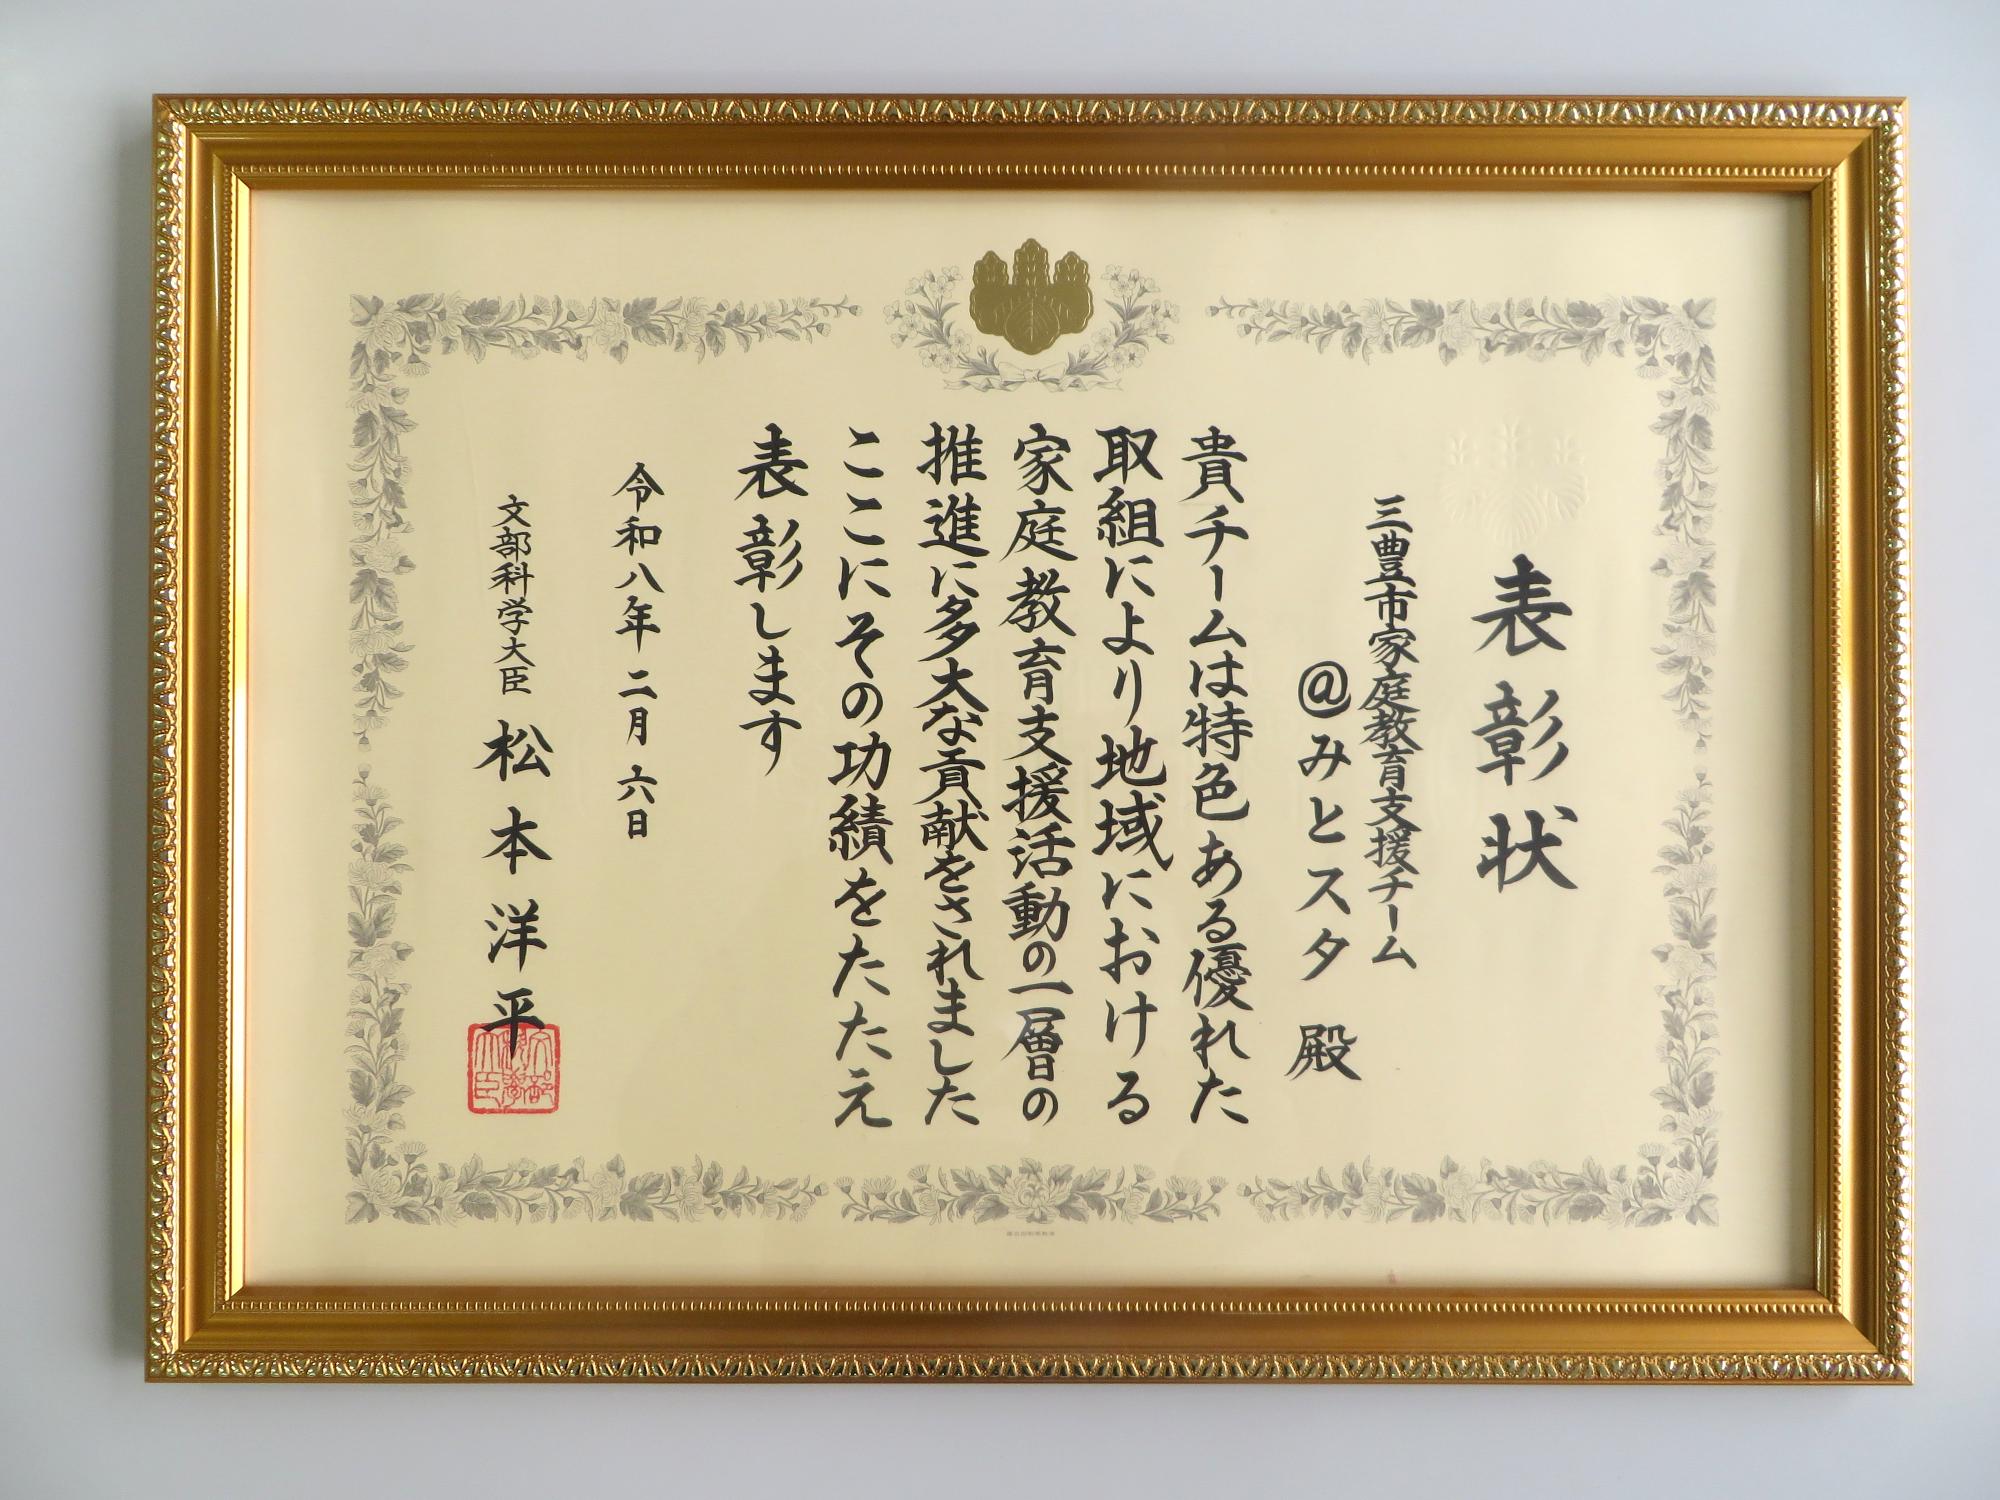 表彰状
三豊市家庭教育支援チーム
@みとスタ 殿
貴チームは特色ある優れた
取組により地域における
家庭教育支援活動の一層の
推進に多大な貢献をされました
ここにその功績をたたえ
表彰します
令和八年二月六日
文部科学大臣 松本洋平